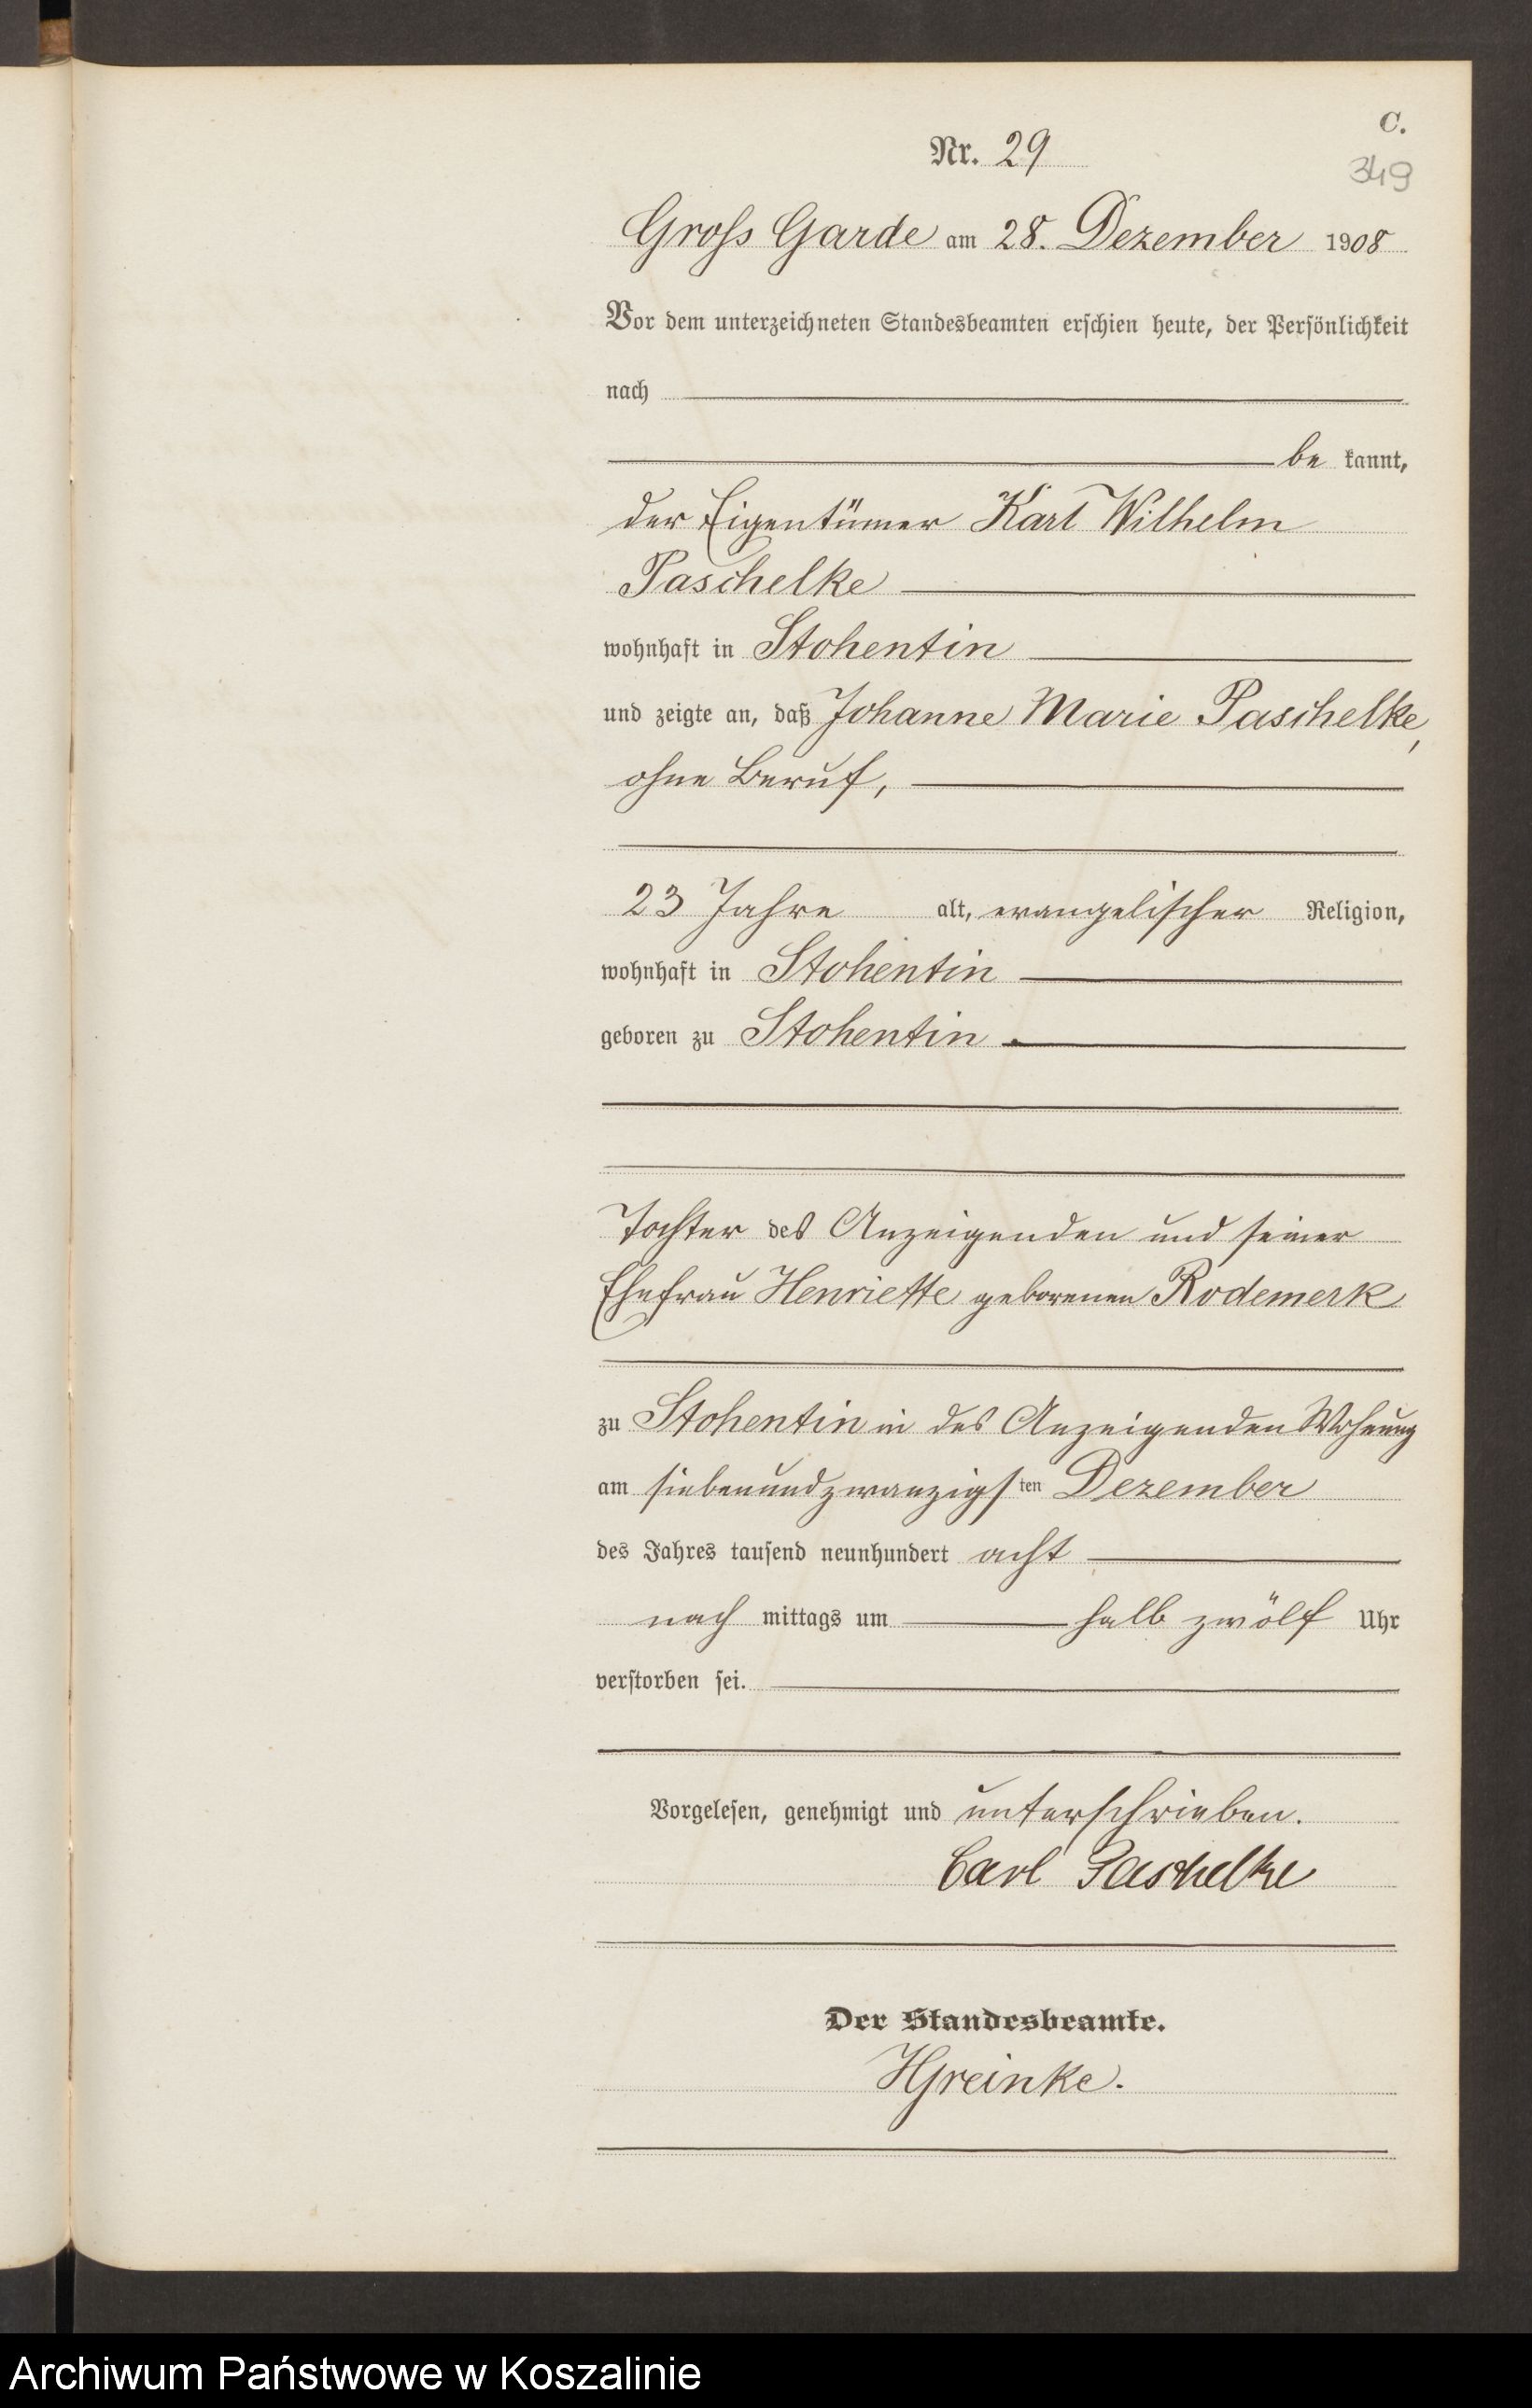 C.
Nr. 29
349
Gross Garde am 28. Dezember 1908
Vor dem unterzeichneten Standesbeamten erschien heute, der Persönlichkeit
nach
be kannt,
der Eigentümer Karl Wilhelm
Paschelke
wohnhaft in Stohentin
und zeigte an, daß Johanne Marie Paschelke,
ohne Beruf,
23 Jahre alt, evangelischer Religion,
wohnhaft in Stohentin
geboren zu Stohentin
Tochter des Anzeigenden und seiner
Ehefrau Henriette geborenen Rodemerk
zu Stohentin in des Anzeigenden Wohnung
am siebenundzwanzigsten Dezember
des Jahres tausend neunhundert acht
nach mittags um halb zwölf Uhr
verstorben sei.
Vorgelesen, genehmigt und unterschrieben.
Carl Paschelke
Der Standesbeamte.
HGreinke.
Archiwum Państwowe w Koszalinie